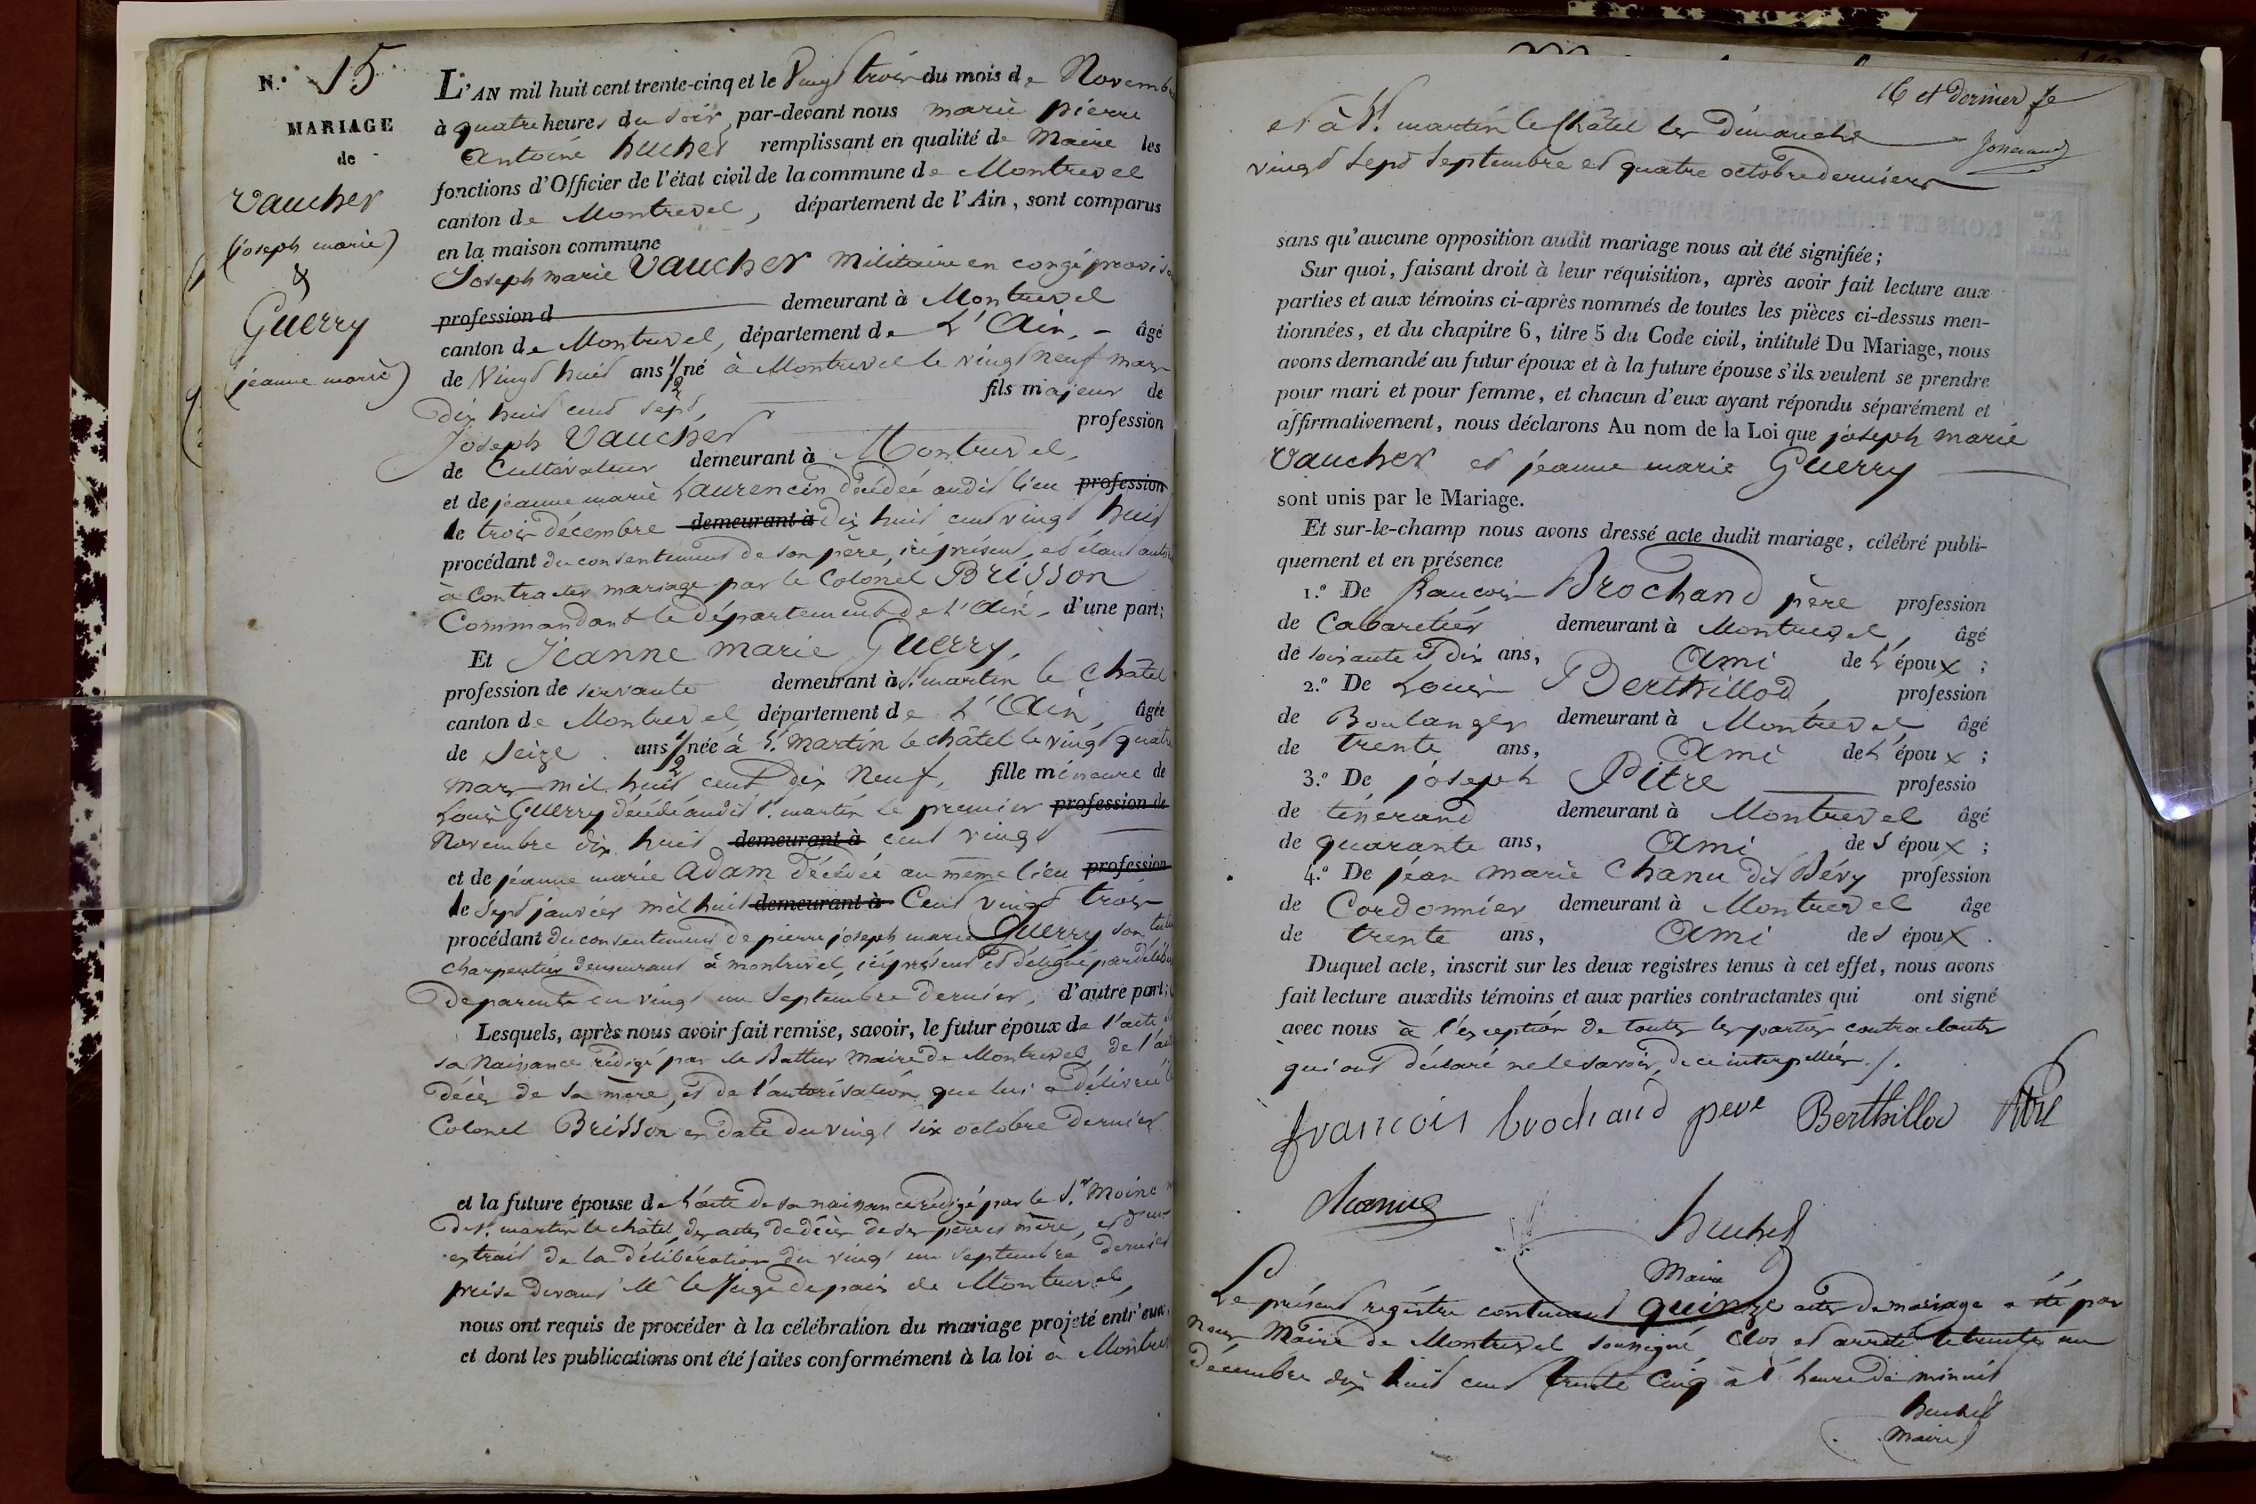 N.° 15
MARIAGE
de
Vaucher
(joseph marie)
&
Guerry
(jeanne marie)
L'AN mil huit cent trente-cinq et le Vingt trois du mois de Novembre
à quatre heures du soir, par-devant nous marie pierre
Antoine huchet remplissant en qualité de Maire les
fonctions d'Officier de l'état civil de la commune de Montrevel
canton de Montrevel, département de l'Ain, sont comparus
en la maison commune
Joseph marie Vaucher Militaire en congé
profession d demeurant à Montrevel
canton de Montrevel, département de L'Ain, âgé
de Vingt huit ans 1/2 né à Montrevel le vingt neuf mars
dix huit cent sept, fils majeur de
Joseph Vaucher profession
de Cultivateur demeurant à Montrevel,
et de jeanne marie Laurencin décédée audit lieu profession
le trois décembre demeurant à dix huit cent vingt huit
procédant du consentement de son père, ici présent, et étant
à Contracter mariage par le Colonel Brisson
Commandant le département de L'Ain, d'une part;
Et Jeanne marie Guerry,
profession de servante demeurant à St. martin le Châtel
canton de Montrevel, département de L'Ain, âgée
de Seize ans 1/2 née à St. Martin le châtel le vingt quatre
mars mil huit cent dix Neuf, fille mineure de
Louis Guerry décédé audit St. martin le premier profession de
Novembre dix huit demeurant à cent vingt
et de jeanne marie Adam décédée au même lieu profession
le Sept janvier mil huit demeurant à Cent vingt trois
procédant du consentement de pierre joseph marie Guerry son
charpentier demeurant à montrevel, ici présent et délégué par
de parents du vingt un Septembre dernier, d'autre part;
Lesquels, après nous avoir fait remise, savoir, le futur époux de l'acte
sa Naissance rédigé par Maire de Montrevel, de l'acte
décès de sa mère, et de l'autorisation que lui a délivré
Colonel Brisson en date du vingt six octobre dernier
et la future épouse de L'acte de sa naissance rédigé par le Sr. Moine
de St. martin le châtel, des actes de décès de ses père et mère, et d'un
extrait de la délibération du vingt un Septembre dernier
prise devant Mr le Juge de paix de Montrevel,
nous ont requis de procéder à la célébration du mariage projeté entr'eux,
et dont les publications ont été faites conformément à la loi à Montrevel
16 et dernier
et à St. martin le Châtel les dimanche
vingt sept Septembre et quatre octobre derniers
sans qu'aucune opposition audit mariage nous ait été signifiée;
Sur quoi, faisant droit à leur réquisition, après avoir fait lecture aux
parties et aux témoins ci-après nommés de toutes les pièces ci-dessus men-
tionnées, et du chapitre 6, titre 5 du Code civil, intitulé Du Mariage, nous
avons demandé au futur époux et à la future épouse s'ils veulent se prendre
pour mari et pour femme, et chacun d'eux ayant répondu séparément et
affirmativement, nous déclarons Au nom de la Loi que joseph marie
Vaucher et jeanne marie Guerry
sont unis par le Mariage.
Et sur-le-champ nous avons dressé acte dudit mariage, célébré publi-
quement et en présence
1.° De francois Brochand père profession
de Cabaretier demeurant à Montrevel, âgé
de soixante et dix ans, Ami de L'époux;
2.° De Louis Berthillod, profession
de Boulanger demeurant à Montrevel âgé
de trente ans, Ami de L'époux;
3.° De joseph Pitre professio
de demeurant à Montrevel âgé
de quarante ans, Ami des époux;
4.° De jean marie Chanu dit Bévy profession
de Cordonnier demeurant à Montrevel âge
de trente ans, Ami des époux.
Duquel acte, inscrit sur les deux registres tenus à cet effet, nous avons
fait lecture auxdits témoins et aux parties contractantes qui ont signé
avec nous à l'exception de toutes les parties contractantes
qui ont déclaré ne le savoir, de ce interpellées./.
francois brochand pere Berthillod Pitre
huchet
Maire
Le présent registre contenant quinze actes de mariage a été par
nous Maire de Montrevel soussigné, Clos et arrêté le trente un
décembre dix huit cent trente Cinq à l'heure de minuit
huchet
Maire